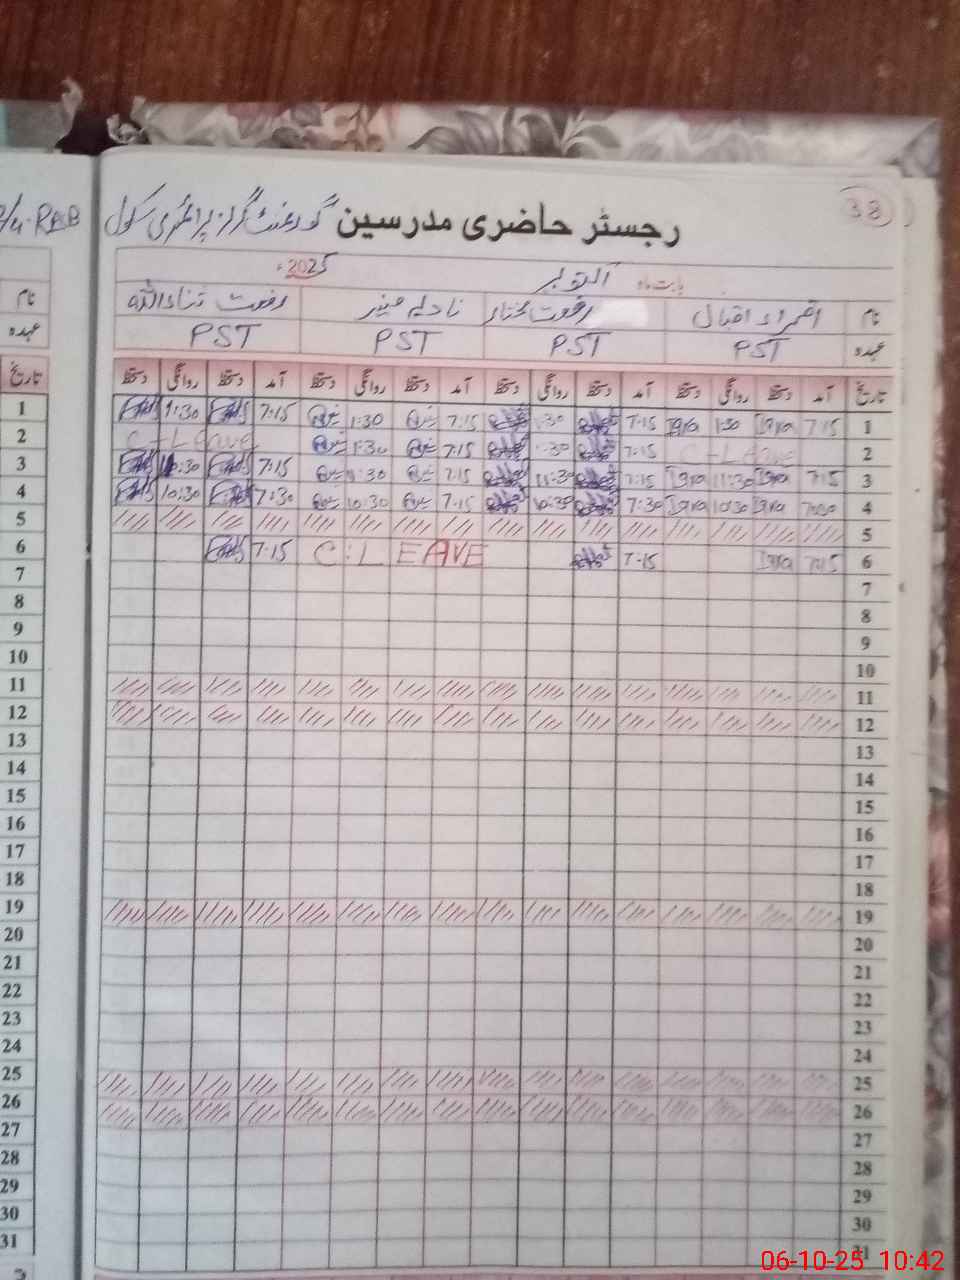 38
رجسٹر حاضری مدرسین گورنمنٹ گرلز پرائمری سکول
بابت ماہ اکتوبر 2025ء
نام اقراء اقبال رفعت مختار نادیہ منیر رفعت ثناءاللہ
عہدہ PST PST PST PST
تاریخ آمد دستخط روانگی دستخط آمد دستخط روانگی دستخط آمد دستخط روانگی دستخط آمد دستخط روانگی دستخط تاریخ
1 7:15 Iqra 1:30 Iqra 7:15 1:30 7:15 1:30 7:15 1:30 1
2 C-LEAVE 7:15 1:30 7:15 1:30 C-Leave 2
3 7:15 Iqra 11:30 Iqra 7:15 11:30 7:15 11:30 7:15 3
4 7:30 Iqra 10:30 Iqra 7:30 10:30 7:15 10:30 7:30 10:30 4
5 5
6 7:15 Iqra 7:15 C:LEAVE 7:15 6
7 7
8 8
9 9
10 10
11 11
12 12
13 13
14 14
15 15
16 16
17 17
18 18
19 19
20 20
21 21
22 22
23 23
24 24
25 25
26 26
27 27
28 28
29 29
30 30
31 31
نام
عہدہ
تاریخ
06-10-25 10:42